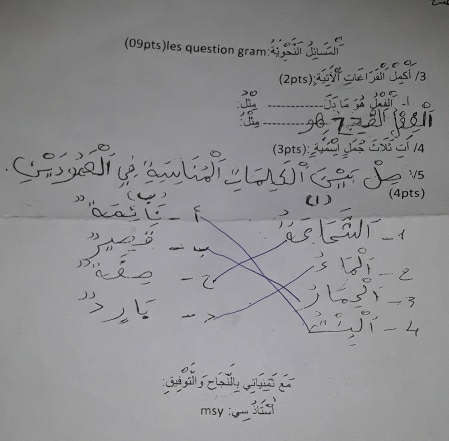 اَلْمَسَائِلُ النَّحْوِيَّةُ:les question gram(09pts)
3/ أَكْمِلْ الْفَرَاغَاتِ الْآتِيَةِ:(2pts)
أ- اَلْفِعْلُ هُوَ مَا دَلَّ------------ مِثْلُ:
اَلْفِعْلُ الصَّحِيحُ هُوَ------------ مِثْلُ:
4/ آتِ ثَلَاثَ جُمَلٍ اِسْمِيَّةٍ:(3pts)
5/ صِلْ بَيْنَ الْكَلِمَاتِ الْمُنَاسِبَةِ فِي الْعَمُودَيْنِ.
(4pts)
(ا) (ب)
1- الشَّجَاعَةُ أ- نَائِمَةٌ
2- الْمَاءُ ب- قَصِيرٌ
3- الْحِمَارُ ج- صِفَةٌ
4- الْبِنْتُ د- بَارِدٌ
مَعَ تَمَنِيَاتِي بِالنَّجَاحِ وَالتَّوْفِيقِ:
أُسْتَاذُ سِي: msy